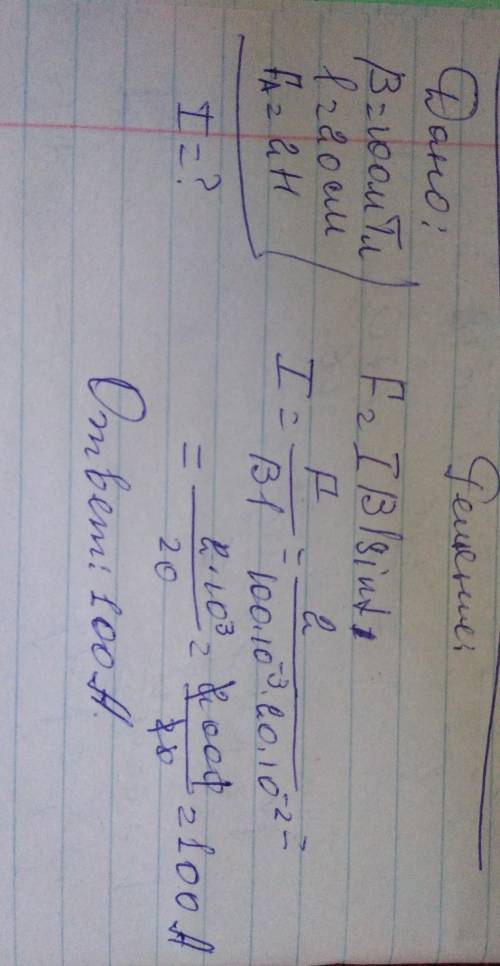 Дано:
B=100мТл
l=20см
Fₐ=2Н
I=?
Решение:
F=IBlsinα
I = F/Bl = 2/100·10⁻³·20·10⁻² =
= 2·10³/20 = 2000/20 = 100 А
Ответ: 100 А.